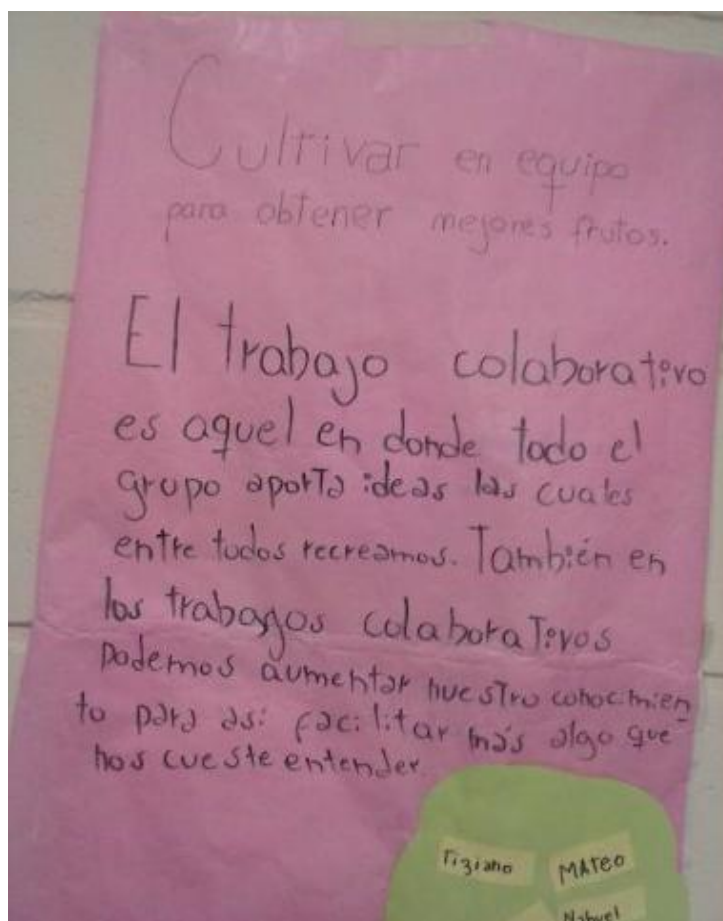 Cultivar en equipo
para obtener mejores frutos.
El trabajo colaborativo
es aquel en donde todo el
grupo aporta ideas las cuales
entre todos recreamos. También en
los trabajos colaborativos
podemos aumentar nuestro conocimien
to para asi facilitar más algo que
nos cueste entender
Tiziano MATEO
Nahuel